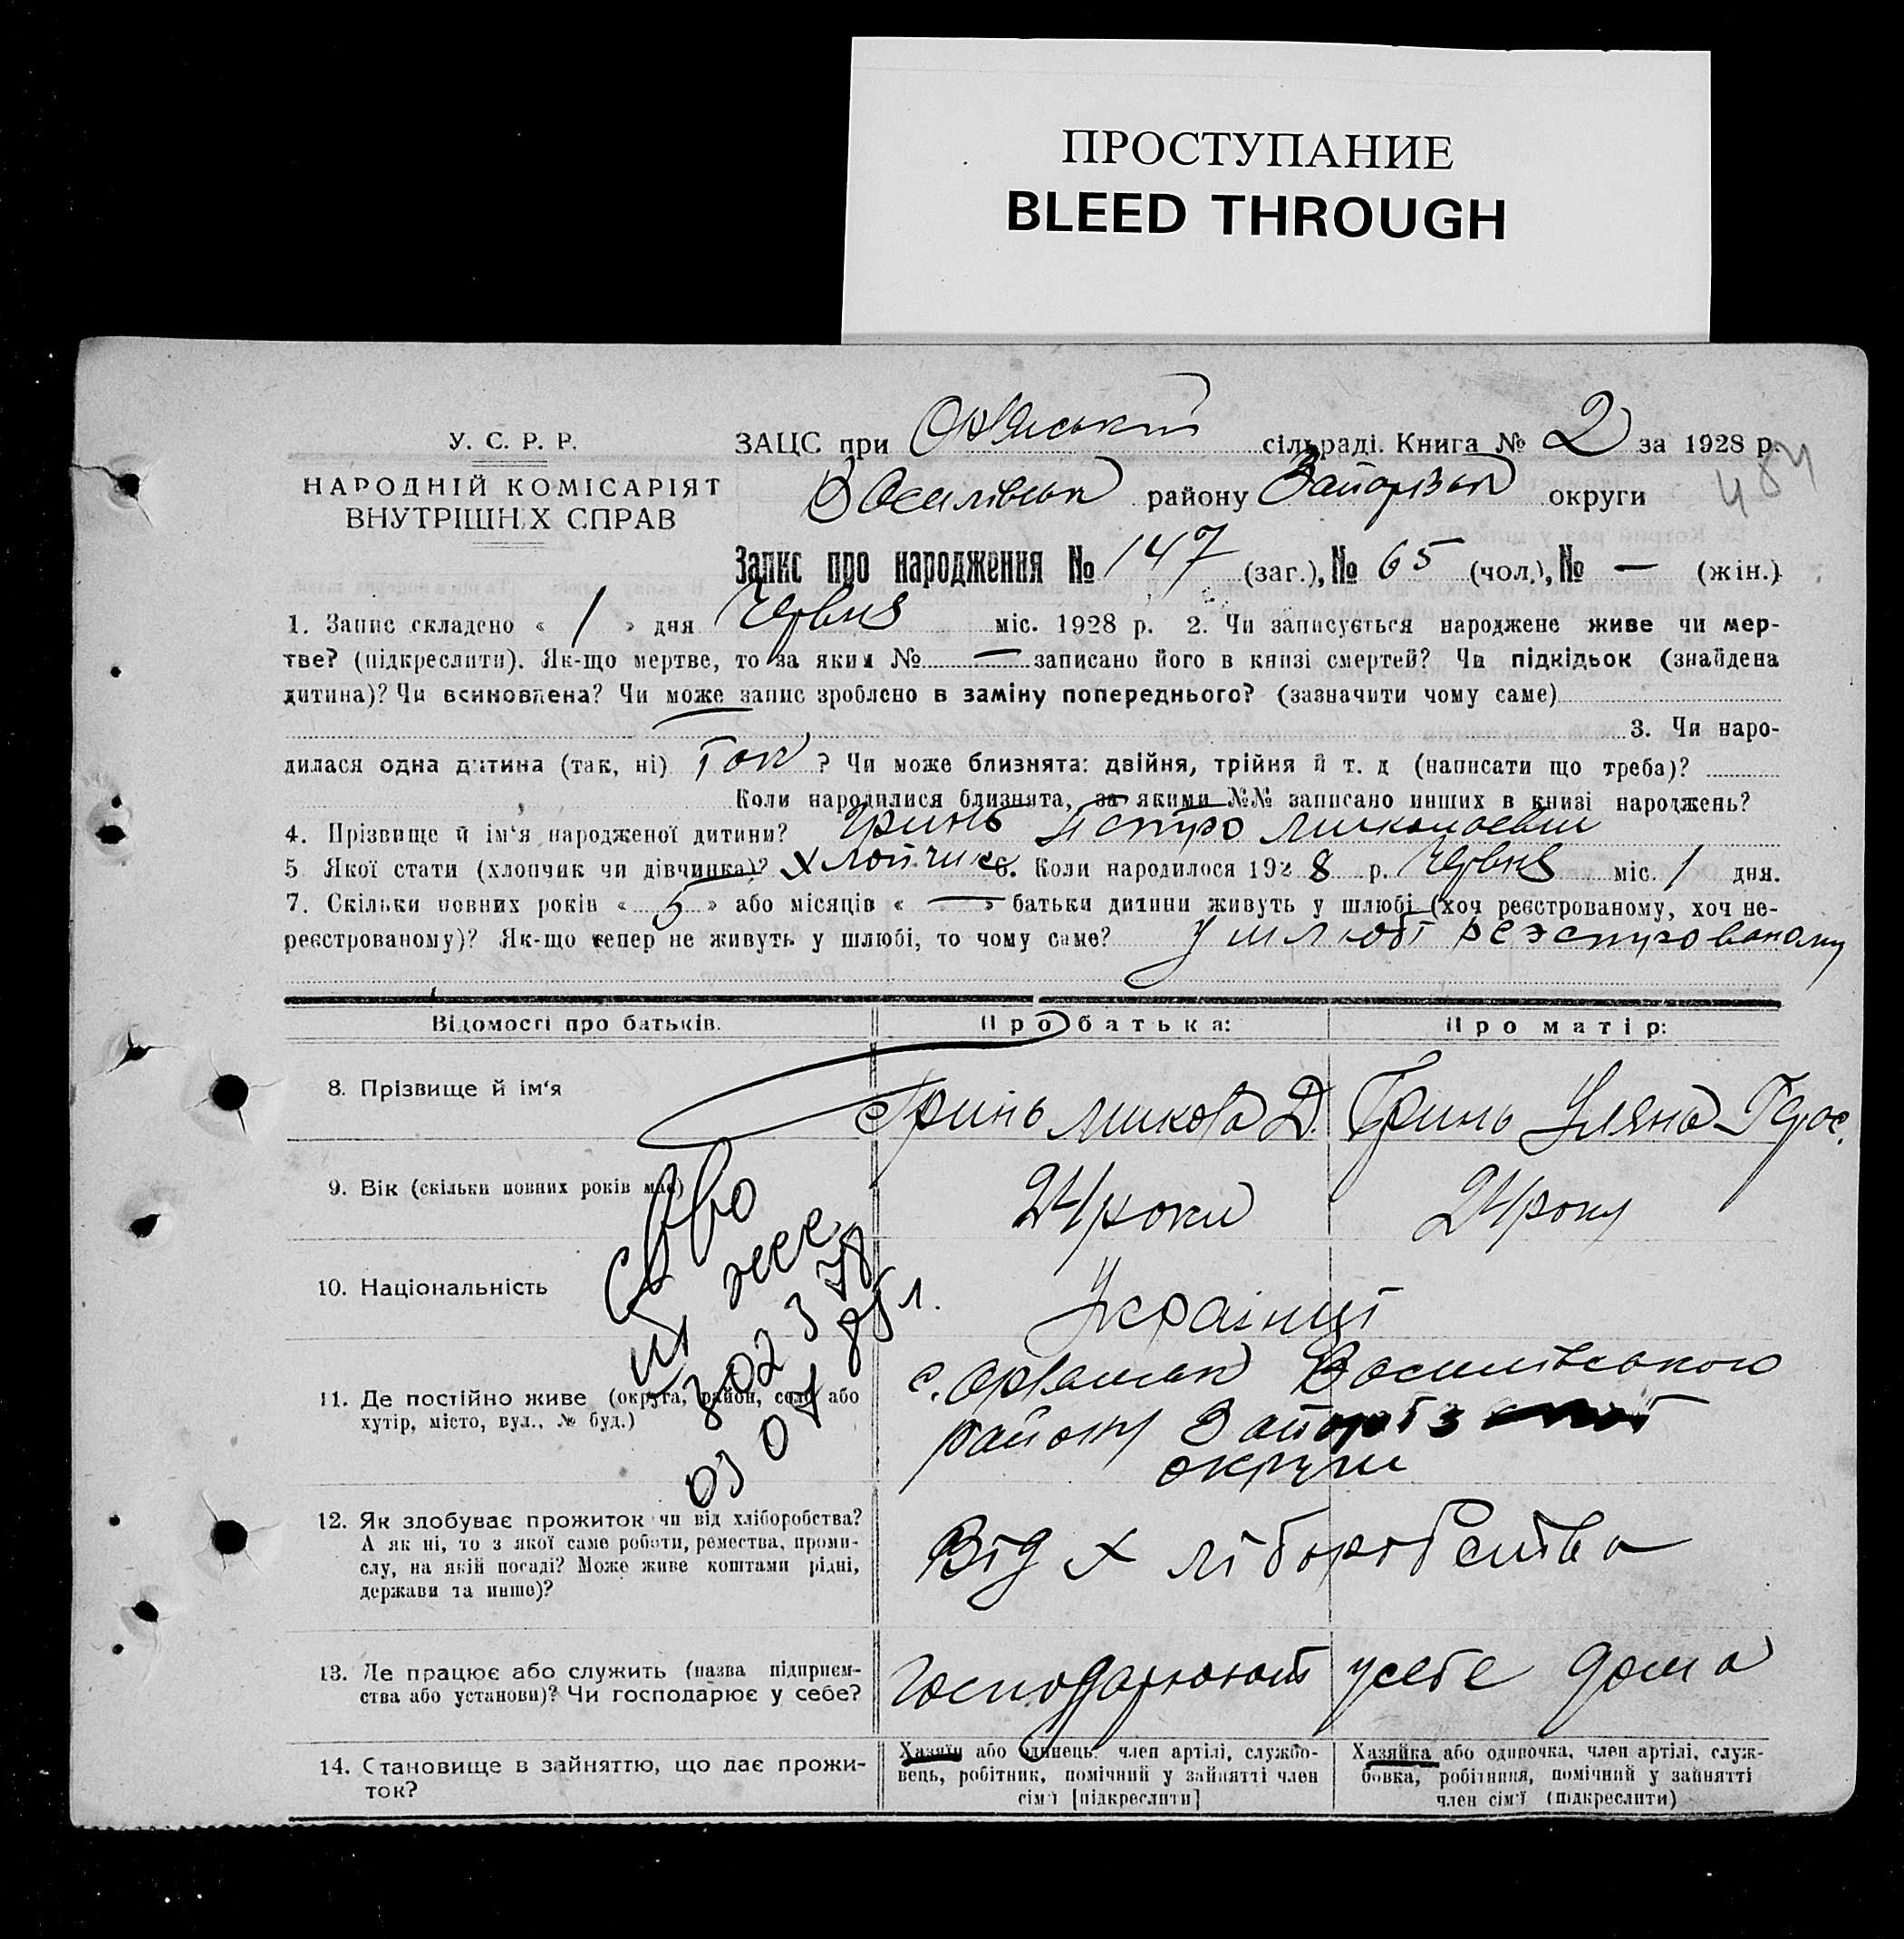 ПРОСТУПАНИЕ
BLEED THROUGH
У. С. Р. Р.
НАРОДНІЙ КОМІСАРІЯТ
ВНУТРІШНІХ СПРАВ
ЗАЦС при сільраді. Книга № 2 за 1928 р.
484
Василівськ району округи
Запис про народження № 147 (заг.), № 65 (чол.), № — (жін.)
1. Запис складено « 1 » дня Червня міс. 1928 р. 2. Чи записується народжене живе чи мер-
тве? (підкреслити). Як-що мертве, то за яким № — записано його в книзі смертей? Чи підкідьок (знайдена
дитина)? Чи всиновлена? Чи може запис зроблено в заміну попереднього? (зазначити чому саме)
— 3. Чи наро-
дилася одна дитина (так, ні) Так ? Чи може близнята: двійня, трійня й т. д (написати що треба)?
Коли народилися близнята, за якими №№ записано инших в книзі народжень?
4. Прізвище й ім‘я народженої дитини? Гринь Петро Миколаєвич
5 Якої стати (хлопчик чи дівчинка)? Хлопчик 6. Коли народилося 1928 р. Червня міс. 1 дня.
7. Скільки повних років « 5 » або місяців « — » батьки дитини живуть у шлюбі (хоч реєстрованому, хоч не-
реєстрованому)? Як-що тепер не живуть у шлюбі, то чому саме? У шлюбі реэстрованому
Відомості про батьків. Про батька: Про матір:
8. Прізвище й ім‘я Гринь Микола Д. Гринь Уляна
9. Вік (скільки повних років має) 24 роки 24 року
10. Національність Українці
11. Де постійно живе (округа, район, село або
хутір, місто, вул., № буд.)
с. Василівського
району
округи
12. Як здобуває прожиток чи від хліборобства?
А як ні, то з якої саме роботи, ремества, проми-
слу, на якій посаді? Може живе коштами рідні,
держави та инше)?
Від хліборобства
13. Де працює або служить (назва підприєм-
ства або установи)? Чи господарює у себе?
Господарюють усебе дома
14. Становище в зайняттю, що дає прожи-
ток?
Хазяїн або одинець, член артілі, службо-
вець, робітник, помічний у зайнятті член
сім‘ї [підкреслити]
Хазяйка або одиночка, член артілі, служ-
бовка, робітниця, помічний у зайнятті
член сім‘ї (підкреслити)